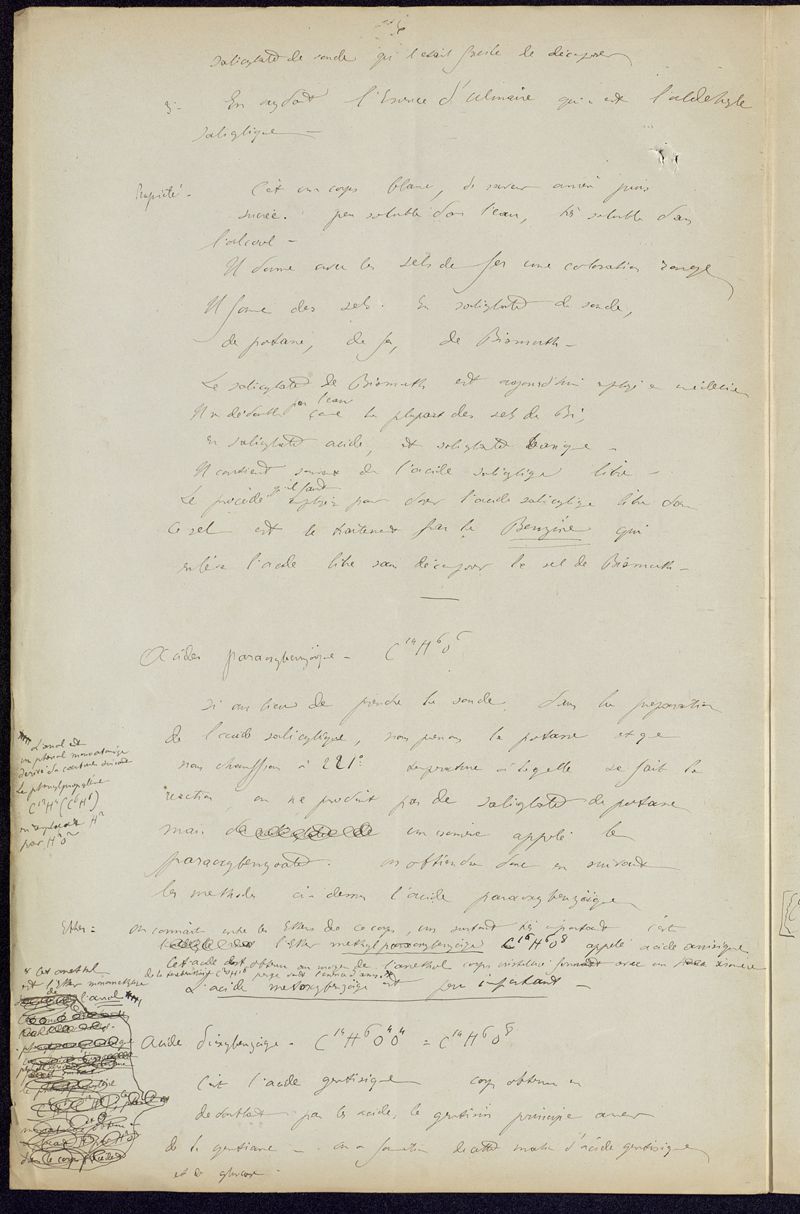 salicylate de soude qui serait facile de décomposer
3° En oxydant l'Essence d'Ulmaire qui est l'aldehyde
salicylique —
Propriété - C'est un corps blanc, de saveur puis
sucrée. peu soluble dans l'eau, très soluble dans
l'alcool —
Il donne avec les sels de fer une coloration rouge
Il forme des sels. En salicylate de soude,
de potasse, de fer, de Bismuth —
Le salicylate de Bismuth est aujourd'hui employé en médecine
Il se dédouble par l'eau comme la plupart des sels de Bi,
en salicylate acide, et salicylate basique —
Il contient souvent de l'acide salicylique libre —
Le procédé qu'il faut employer pour doser l'acide salicylique libre dans
ce sel est le traitement par la Benzine qui
enlève l'acide libre sans décomposer le sel de Bismuth —
Acides paraoxybenzoïque — C14H6O6
Si au lieu de prendre la soude dans la préparation
de l'acide salicylique, nous prenons la potasse et que
nous chauffions à 221° température à laquelle se fait la
réaction, on ne produit pas de salicylate de potasse
mais un isomère appelé le
paraoxybenzoate. on obtiendra donc en suivant
les méthodes ci-dessus l'acide paraoxybenzoïque
L'anol est
un phénol monoatomique
dérivé du carbure suivant
Le phenylpropylène
C12H4(C6H6)
on remplace H2
par H2O2
Ethers = on connait entre les Ethers de ce corps, un surtout très important c'est
l'Ether methylparaoxybenzoïque C16H8O6 appelé acide anisique
Cet acide est obtenu au moyen de l'anethol corps cristallisé formant avec un isomère
de la terebenthine C20H16
L'acide metaoxybenzoïque est peu important —
Cet anethol
est l'Ether monomethylique
de l'anol
Acide dioxybenzoïque - C14H6O4O4 = C14H6O8
C'est l'acide gentisique corps obtenu en
dedoublant par les acides, le gentisin principe amer
de la gentiane — on a formation de cette matière d'acide gentisique
et de glucose -